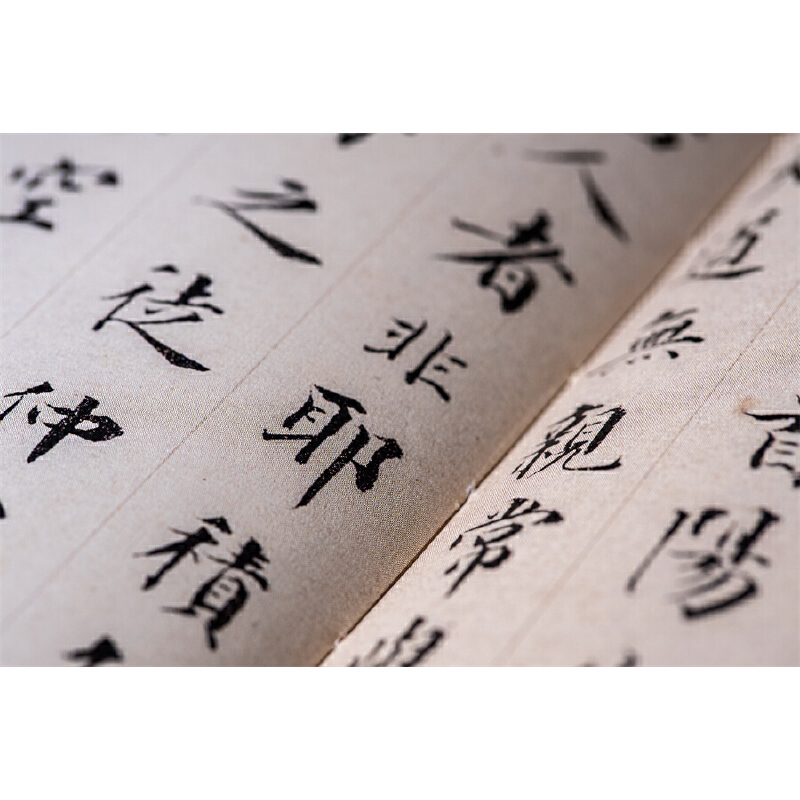 首陽
道無親常與
人者非耶積
之徒仲
空